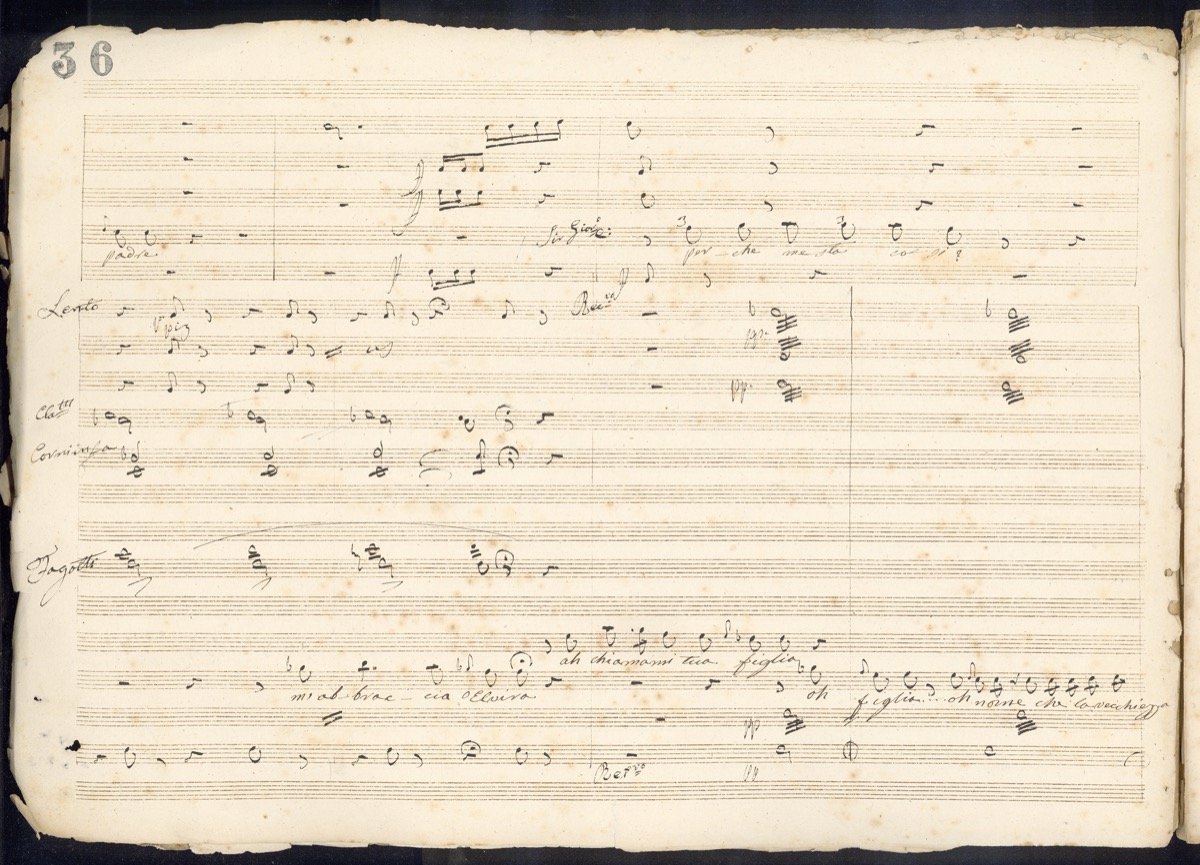 36
Sir Gior.º:
padre
per - che me sta co si ?
Lento
Rec.vo
pp.
pp.
Cla.tti
Corni in fa
Fagotti
ah chiamami tua figlia
m'ab brac - cia o Elvira
oh figlia... oh nome che la vecchiezza
pp
Rec.vo
pp